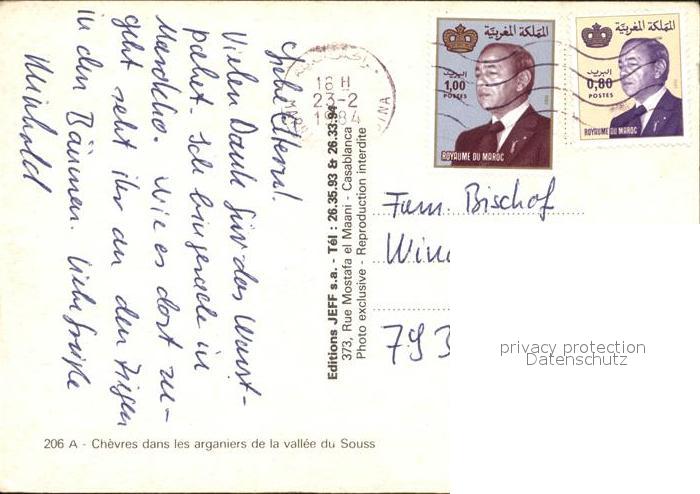 Liebe Eltern!
Vielen Dank für das Wurst-
paket. Ich bin gerade in
Marokko. Wie es dort zu-
geht seht ihr an den Ziegen
in den Bäumen. Liebe Grüße
Meinhold
المملكة المغربية
البريد
1,00
POSTES
ROYAUME DU MAROC
المملكة المغربية
البريد
0,80
POSTES
ROYAUME DU MAROC
18 H
23-2
1984
Editions JEFF s.a. - Tél : 26.35.93 & 26.33.94
373, Rue Mostafa el Maani - Casablanca
Photo exclusive - Reproduction interdite
Fam. Bischof
793
privacy protection
Datenschutz
206 A - Chèvres dans les arganiers de la vallée du Souss